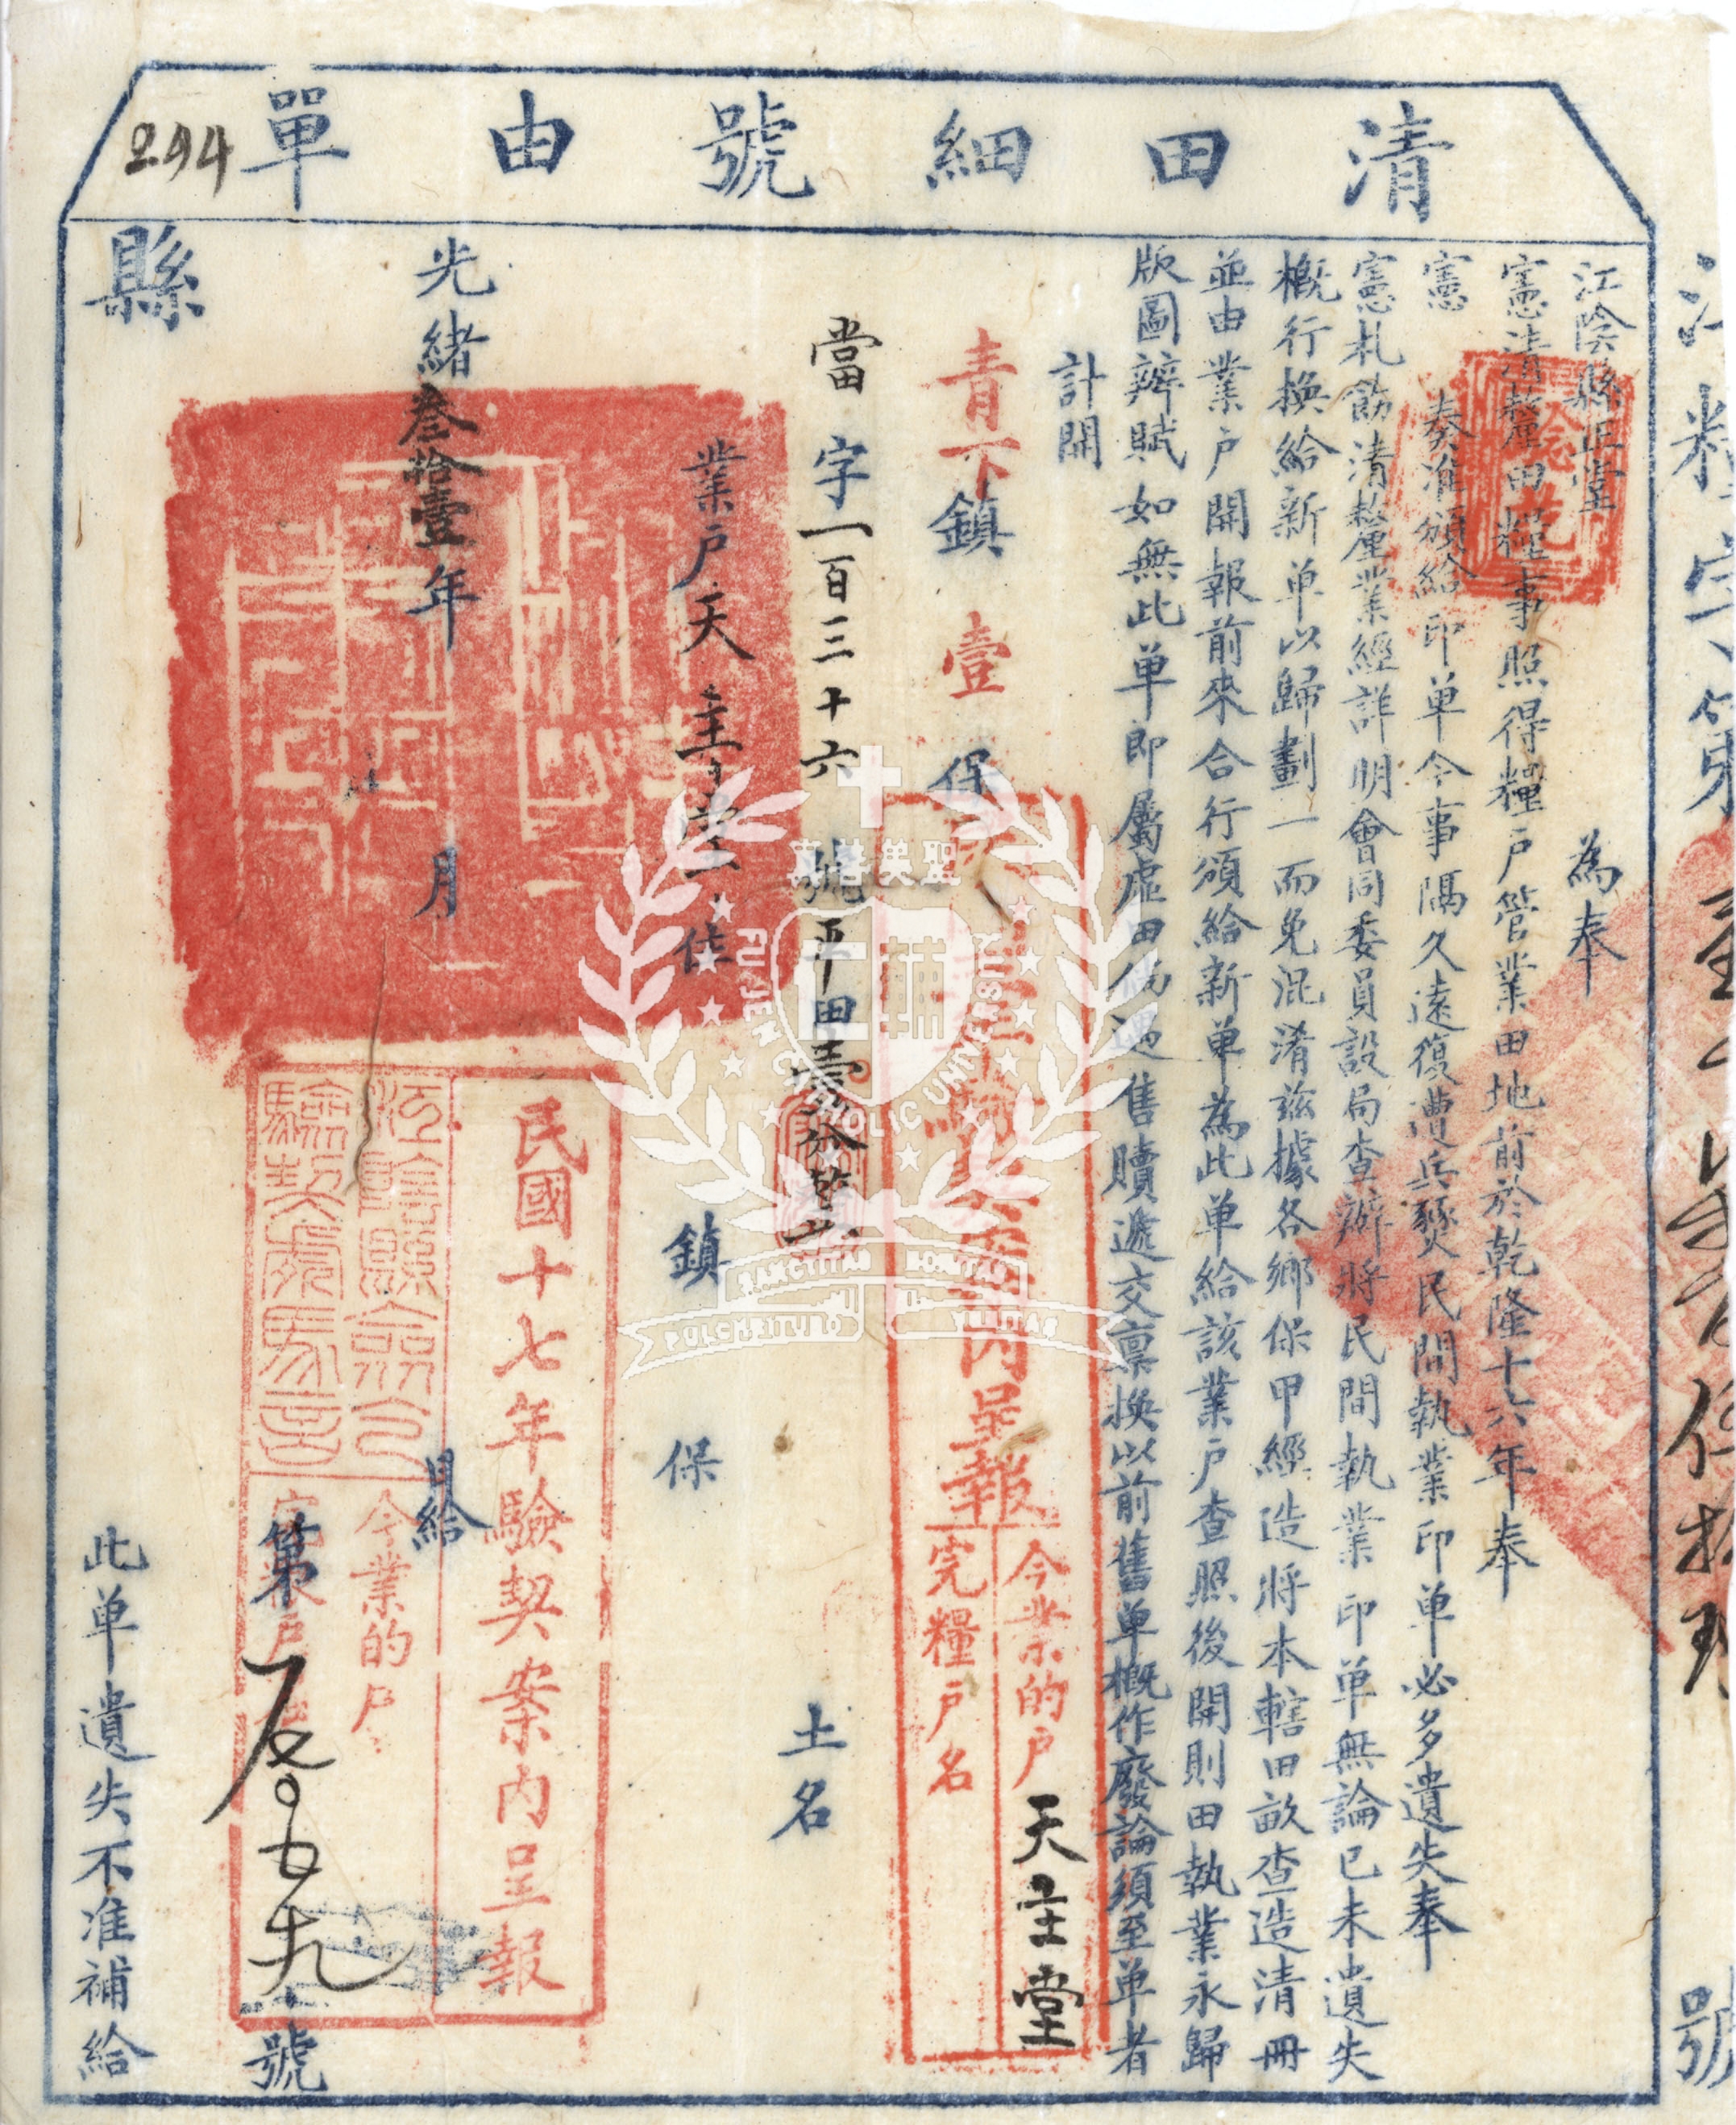 清田細號由單
294
江陰縣正堂 為奉
憲清釐田糧事照得糧戶管業田地前於乾隆十六年奉
憲 奏准頒給印单今事隔久遠復遭兵燹民間執業印单必多遺失奉
憲札飭清釐業經詳明會同委員設局查辦將民間執業印单無論已未遺失
概行換給新单以歸劃一而免混淆茲據各鄉保甲經造將本轄田畝查造清冊
並由業户開報前來合行頒給新单為此单給該業户查照後開則田執業永歸
版圖辦賦如無此单即屬虛田偽遇售贖遞交稟換以前舊单概作廢論須至单者
計開
青下鎮壹保
當字一百三十六號平田壹分
土名
業户天主堂住 鎮 保
光緒叁拾壹年 月 日給
縣
第 號
此单遺失不准補給
呈報
今業的户 天主堂
完糧户名
民國十七年驗契案內呈報
今業的户
號
FU JEN CATHOLIC UNIVERSITY
SANCTITAS BONITAS
PULCHRITUDO VERITAS
真善美聖